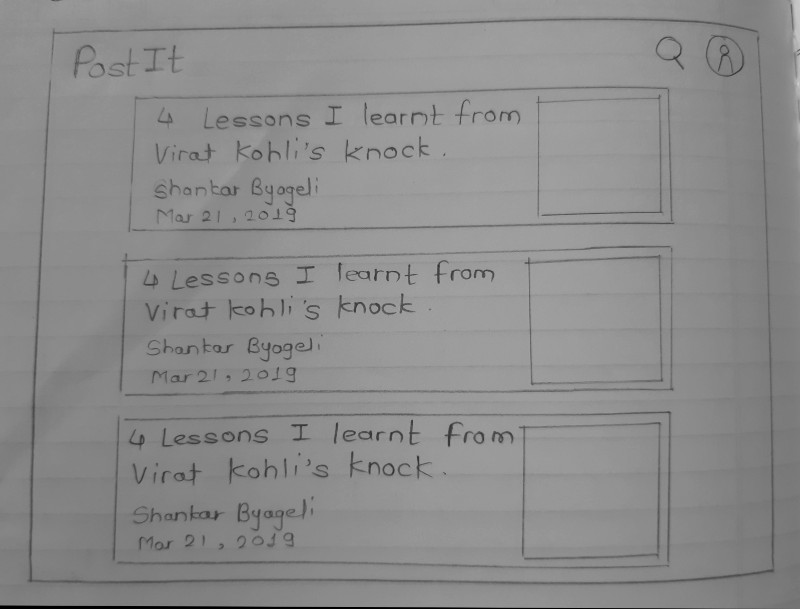 PostIt
4 Lessons I learnt from
Virat Kohli's knock.
Shankar Byageli
Mar 21, 2019
4 Lessons I learnt from
Virat Kohli's knock.
Shankar Byageli
Mar 21, 2019
4 Lessons I learnt from
Virat Kohli's knock.
Shankar Byageli
Mar 21, 2019